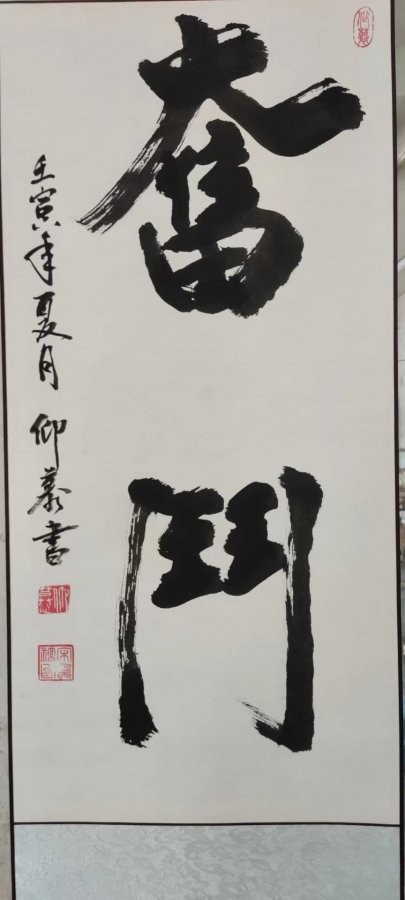 奮鬥
壬寅年夏月 仰慕書